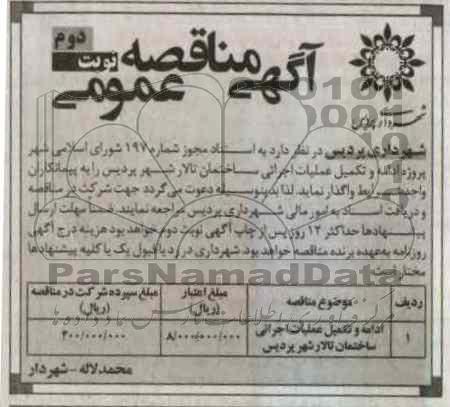 آگهی مناقصه عمومی
نوبت دوم
شهرداری پردیس
شهرداری پردیس در نظر دارد به استناد مجوز شماره ۱۹۷ شورای اسلامی شهر
پروژه ادامه و تکمیل عملیات اجرائی ساختمان تالار شهر پردیس را به پیمانکاران
واجد شرایط واگذار نماید. لذا بدینوسیله دعوت می گردد جهت شرکت در مناقصه
و دریافت اسناد به امور مالی شهرداری پردیس مراجعه نمایند. ضمنا مهلت ارسال
پیشنهادها حداکثر ۱۲ روز پس از چاپ آگهی نوبت دوم خواهد بود هزینه درج آگهی
روزنامه به عهده برنده مناقصه خواهد بود. شهرداری در رد یا قبول یک یا کلیه پیشنهادها
مختار است.
ParsNamadData
ردیف موضوع مناقصه مبلغ اعتبار (ریال) مبلغ سپرده شرکت در مناقصه (ریال)
۱ ادامه و تکمیل عملیات اجرائی ساختمان تالار شهر پردیس ۸/۰۰۰/۰۰۰/۰۰۰ ۴۰۰/۰۰۰/۰۰۰
محمد لاله - شهردار